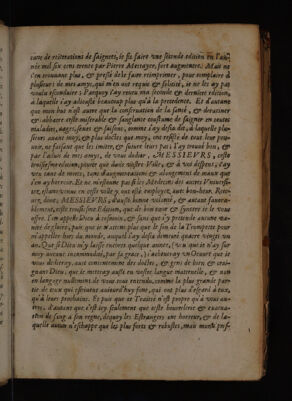 tant de reiterations de saignées, ie fis faire vne seconde edition en l'an-
née mil six cens trente par Pierre Mettayer, fort augmentee. Mais ne
s'en trouuant plus, & pressé de le faire reimprimer, pour complaire à
plusieurs de mes amys, qui m'en ont requis & solicité, ie ne les ay pas
voulu esconduire: Parquoy i'ay reueu ma seconde & derniere edition,
à laquelle i'ay adiousté beaucoup plus qu'à la precedente. Et d'autant
que mon but n'est autre que la conseruation de la santé, & deraciner
& abbatre ceste miserable & sanglante coustume de saigner en toutes
maladies, aages, sexes & saisons, comme i'ay desia dit, à laquelle plu-
sieurs auant moy, & plus doctes, qui m'ont deuancé, l'ont reprou-
uée, ne faisant que les imiter, & suiure leurs pas: I'ay trouué bon, &
par l'aduis de mes amys, de vous dedier, MESSIEVRS, ceste
troisiesme edition, pource que dans vostre Ville, & à vos despens, i'ay
veu tant de morts, tant d'augmentations & alongement de maux que
i'en ay horreur. Et ne m'estant pas seul des Medecins des autres Vniuersi-
tez, estant venus en ceste ville y ont esté employez, auec bon-heur. Rece-
uez, donc, MESSIEVRS, d'aussi bonne volonté, & autant fauora-
blement, ceste troisiesme Edition, que de bon cœur & syncere ie le vous
offre. I'en appelle Dieu à tesmoin, & sans que i'y pretende aucune va-
nité de gloire, puis que ie n'attens plus que le son de la Trompette pour
m'appeller hors du monde, auquel i'ay desia demeuré quatre vingts vn
an. Que si Dieu m'y laisse encores quelque année, (veu que ie n'ay sur
moy aucunes incommoditez, par sa grace,) i'acheueray vn Oeuure que ie
vous dedieray, au contentement des doctes, & gens de bien, & crai-
gnant Dieu: que ie mettray aussi en nostre langue maternelle, & non
en langage nullement de vous tous entendu, comme la plus grande par-
tie de ceux qui escriuent auiourd'huy font, qui ont plus d'esgard à eux,
qu'à leurs prochains. Et puis que ce Traicté n'est propre qu'à vous au-
tres, d'autant que c'est icy seulement que ceste boucherie & euacua-
tion de sang à son regne, dequoy les Estrangers ont horreur, & de la-
quelle aucun n'eschappe que les plus forts & robustes, mais muets pres-